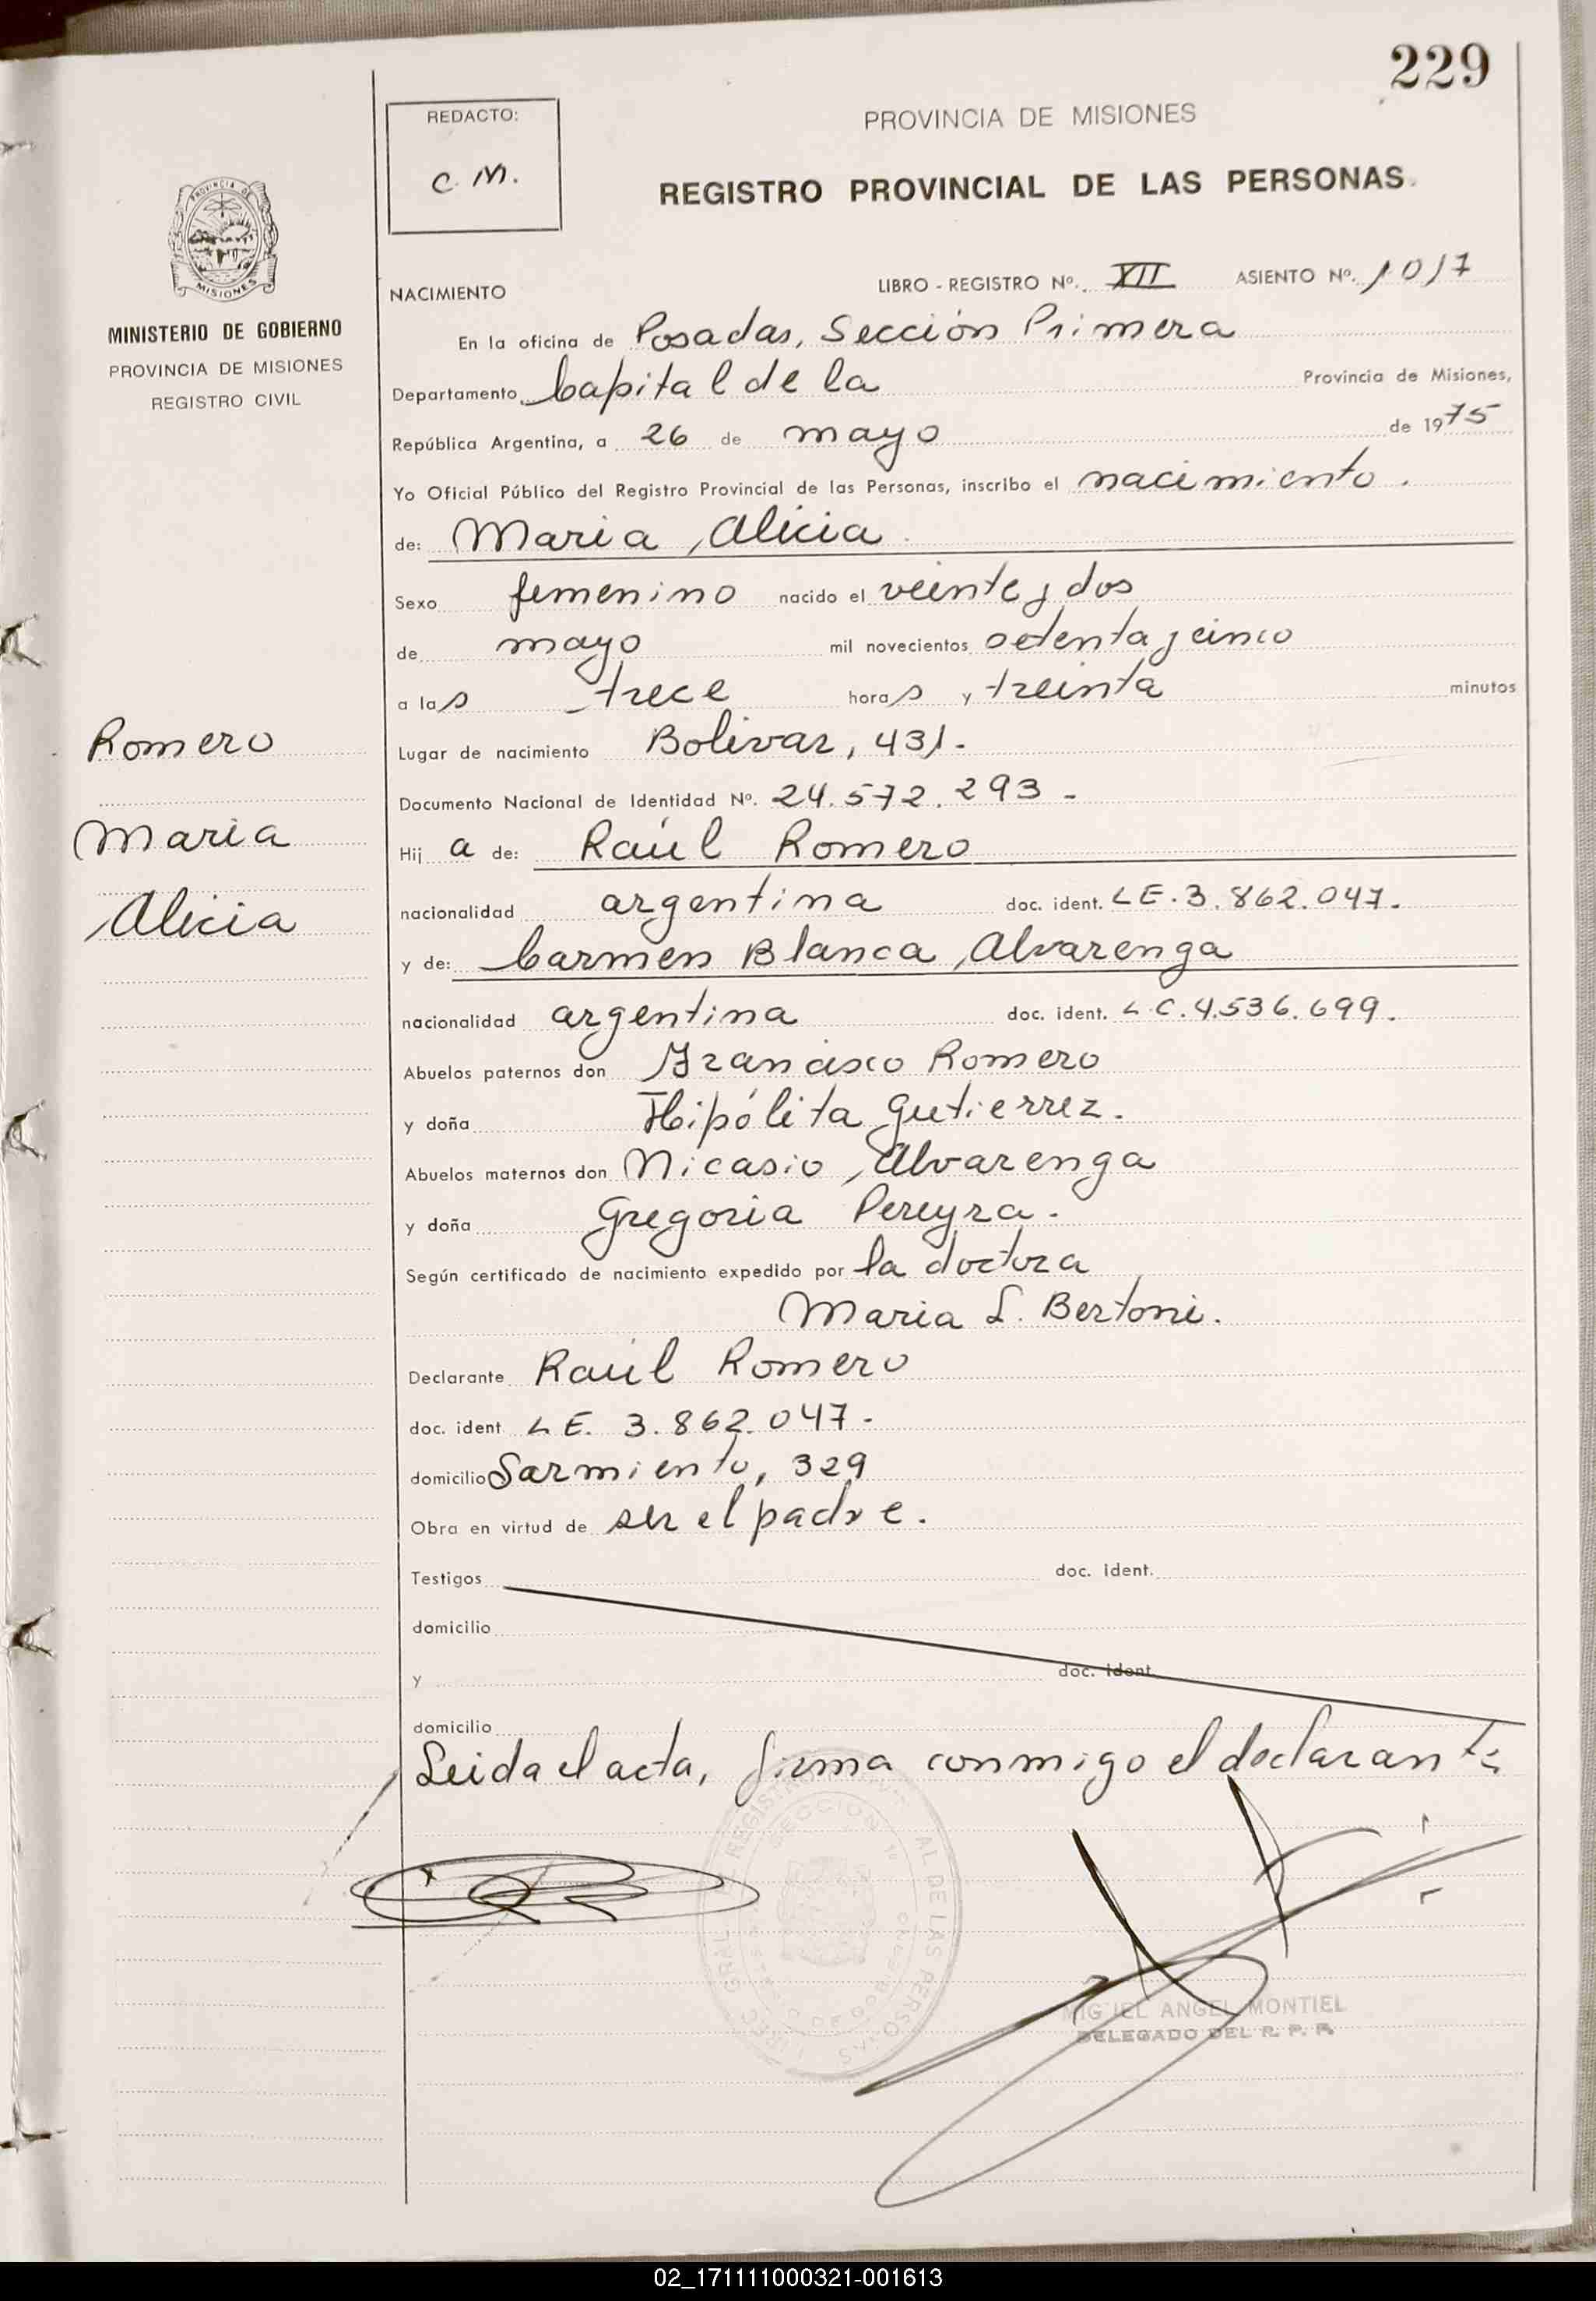 229
REDACTO:
C. M.
PROVINCIA DE MISIONES
REGISTRO PROVINCIAL DE LAS PERSONAS.
MISIONES
MINISTERIO DE GOBIERNO
PROVINCIA DE MISIONES
REGISTRO CIVIL
NACIMIENTO
LIBRO - REGISTRO Nº. XII ASIENTO Nº. 1017
En la oficina de Posadas, Sección Primera
Departamento Capital de la Provincia de Misiones,
República Argentina, a 26 de mayo de 1975
Yo Oficial Público del Registro Provincial de las Personas, inscribo el nacimiento.
de: Maria Alicia
Sexo femenino nacido el veinte y dos
de mayo mil novecientos setenta y cinco
a las trece horas y treinta minutos
Romero
Lugar de nacimiento Bolivar, 431.
Documento Nacional de Identidad Nº. 24.572.293 -
Maria
Hija de: Raúl Romero
Alicia
nacionalidad argentina doc. ident. LE. 3.862.047.
y de: Carmen Blanca Alvarenga
nacionalidad argentina doc. ident. L C. 4.536.699.
Abuelos paternos don Francisco Romero
y doña Hipólita Gutierrez.
Abuelos maternos don Nicasio Alvarenga
y doña Gregoria Pereyra.
Según certificado de nacimiento expedido por la doctora
Maria L. Bertoni.
Declarante Raúl Romero
doc. ident. L E. 3.862.047.
domicilio Sarmiento, 329
Obra en virtud de ser el padre.
Testigos doc. ident.
domicilio
y doc. ident.
domicilio
Leida el acta, firma conmigo el declarante
MIGUEL ANGEL MONTIEL
DELEGADO DEL R. P. P.
02_171111000321-001613